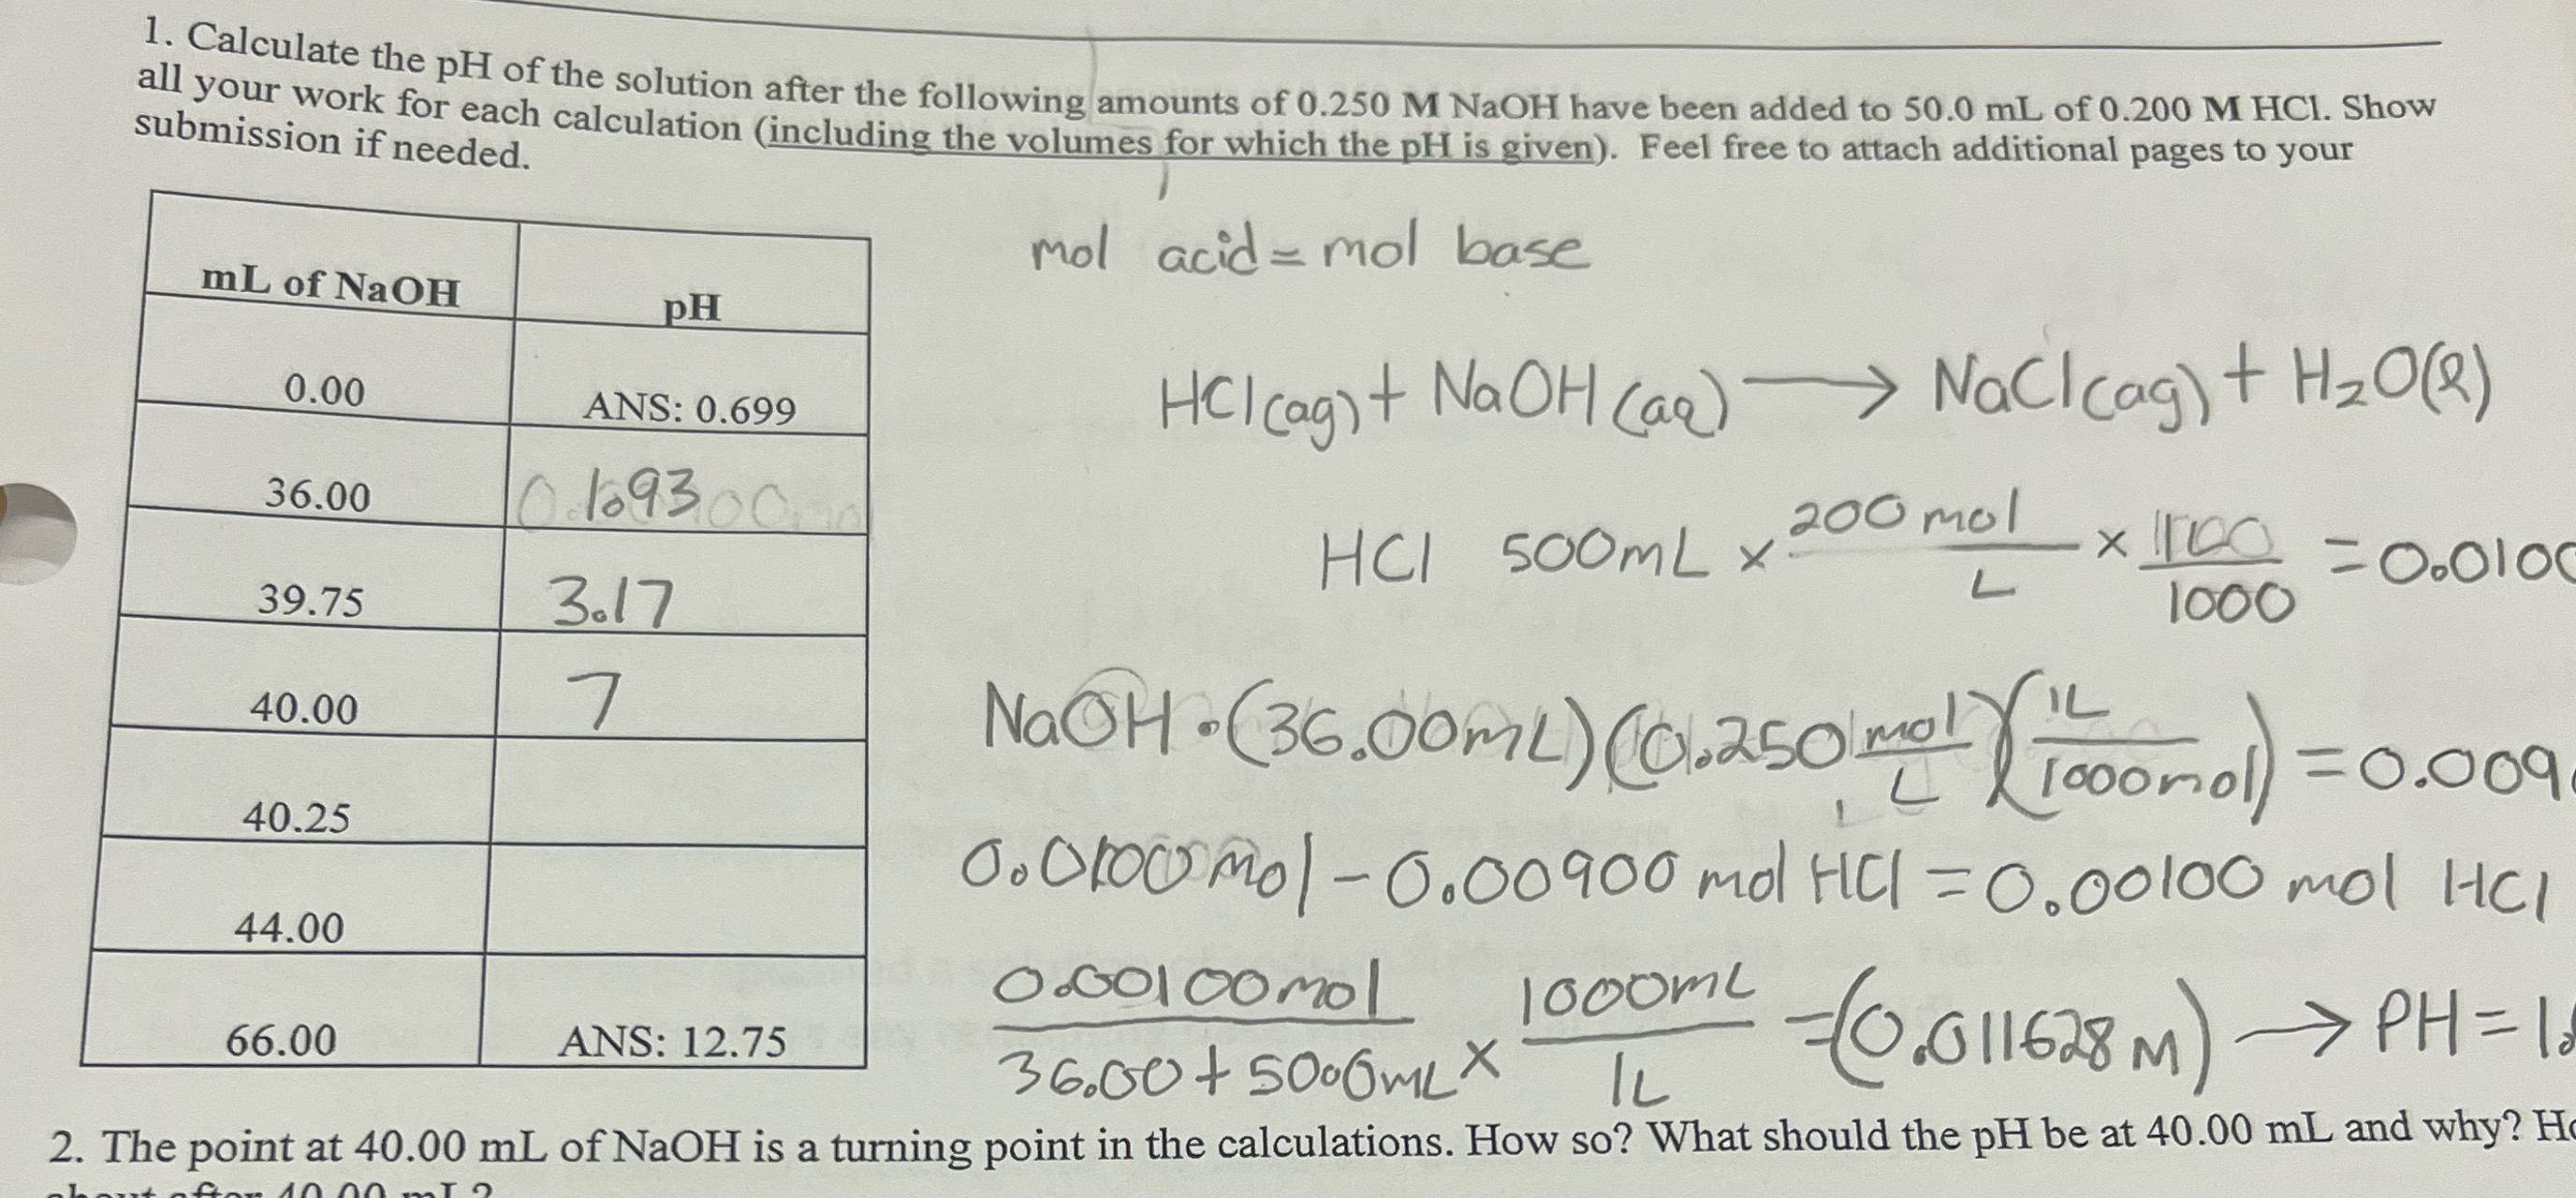 1. Calculate the pH of the solution after the following amounts of 0.250 M NaOH have been added to 50.0 mL of 0.200 M HCl. Show
all your work for each calculation (including the volumes for which the pH is given). Feel free to attach additional pages to your
submission if needed.
mL of NaOH pH
0.00 ANS: 0.699
36.00 1.93
39.75 3.17
40.00 7
40.25
44.00
66.00 ANS: 12.75
mol acid = mol base
HCl(aq) + NaOH(aq) → NaCl(aq) + H₂O(l)
HCl 500mL × 200 mol / L × / 1000 = 0.0100
NaOH • (36.00mL)(0.250 mol / L)(1L / 1000mol) = 0.009
0.0100 mol - 0.00900 mol HCl = 0.00100 mol HCl
0.00100mol / 36.00 + 50.0mL × 1000mL / 1L = (0.011628 M) → PH = 1.
2. The point at 40.00 mL of NaOH is a turning point in the calculations. How so? What should the pH be at 40.00 mL and why?
about after 40.00 mL?